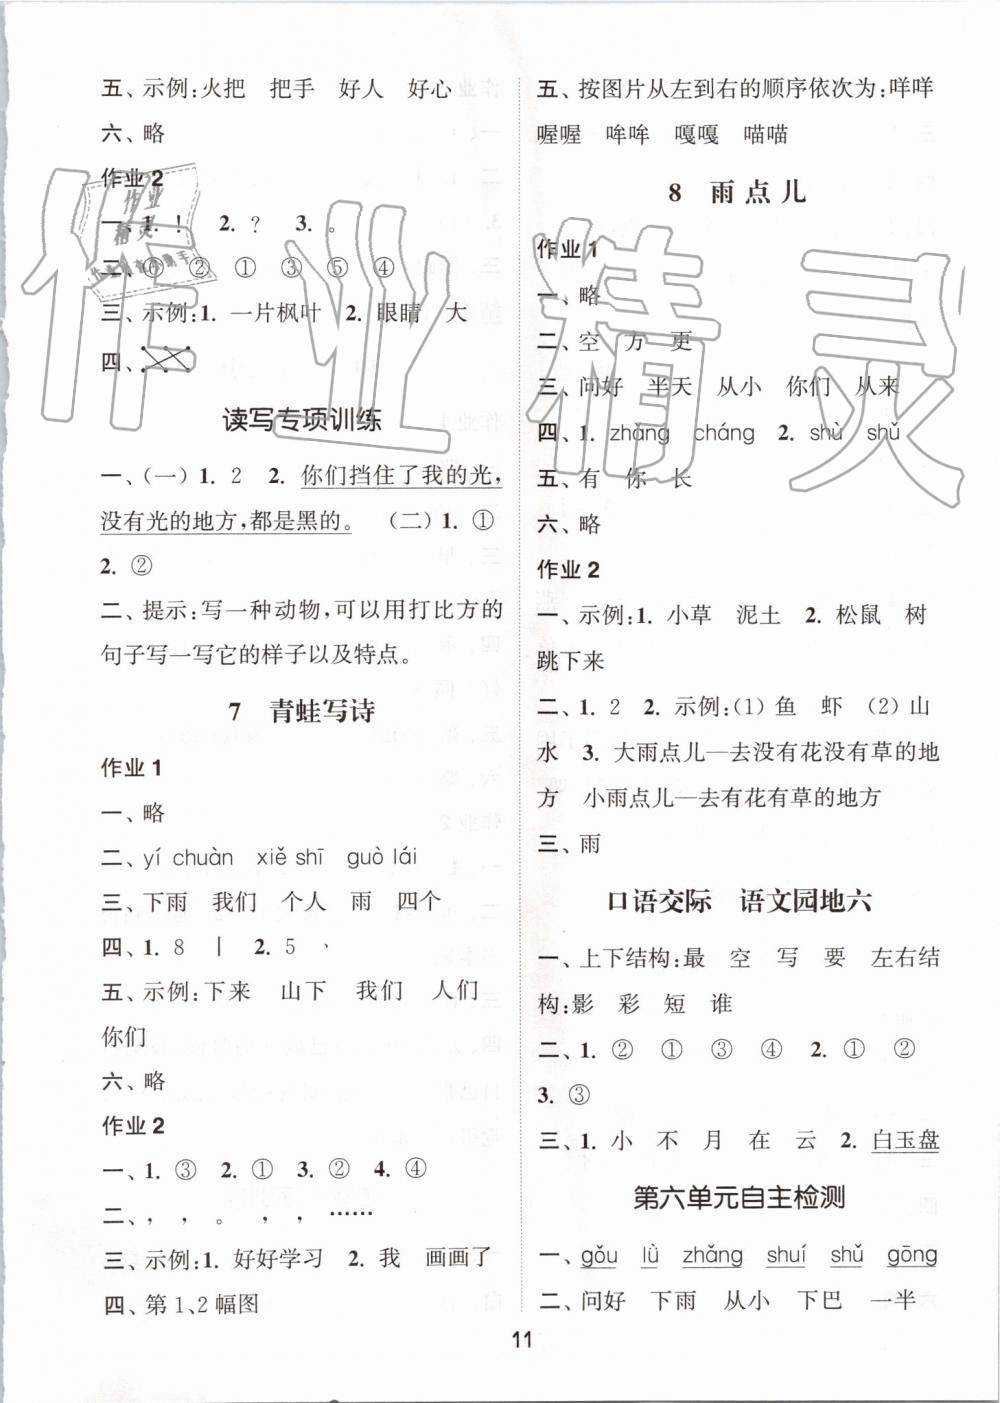 五、示例:火把　把手　好人　好心
六、略
作业2
一、1. !　2. ?　3. 。
④　②　①　③　⑤　④
三、示例:1. 一片枫叶　2. 眼睛　大
四、
读写专项训练
一、(一)1. 2　2. 你们挡住了我的光,
没有光的地方,都是黑的。　(二)1. ①
2. ②
二、提示:写一种动物,可以用打比方的
句子写一写它的样子以及特点。
7　青蛙写诗
作业1
一、略
二、yí chuàn　xiě shī　guò lái
三、下雨　我们　个人　雨　四个
四、1. 8　丨　2. 5　丶
五、示例:下来　山下　我们　人们
你们
六、略
作业2
一、1. ③　2. ①　3. ②　4. ④
二、,　,　。　,　,　……
三、示例:1. 好好学习　2. 我　画画了
四、第1、2幅图
五、按图片从左到右的顺序依次为:咩咩
喔喔　哞哞　嘎嘎　喵喵
8　雨点儿
作业1
一、略
二、空　方　更
三、问好　半天　从小　你们　从来
四、1. zhǎng　cháng　2. shù　shǔ
五、有　你　长
六、略
作业2
一、示例:1. 小草　泥土　2. 松鼠　树
跳下来
二、1. 2　2. 示例:(1)鱼　虾　(2)山
水　3. 大雨点儿—去没有花没有草的地
方　小雨点儿—去有花有草的地方
三、雨
口语交际　语文园地六
一、上下结构:最　空　写　要　左右结
构:影　彩　短　谁
二、1. ②　①　③　④　2. ①　②
3. ③
三、1. 小　不　月　在　云　2. 白玉盘
第六单元自主检测
一、gǒu　lǜ　zhǎng　shuí　shǔ　gōng
二、问好　下雨　从小　下巴　一半
11
作业精灵